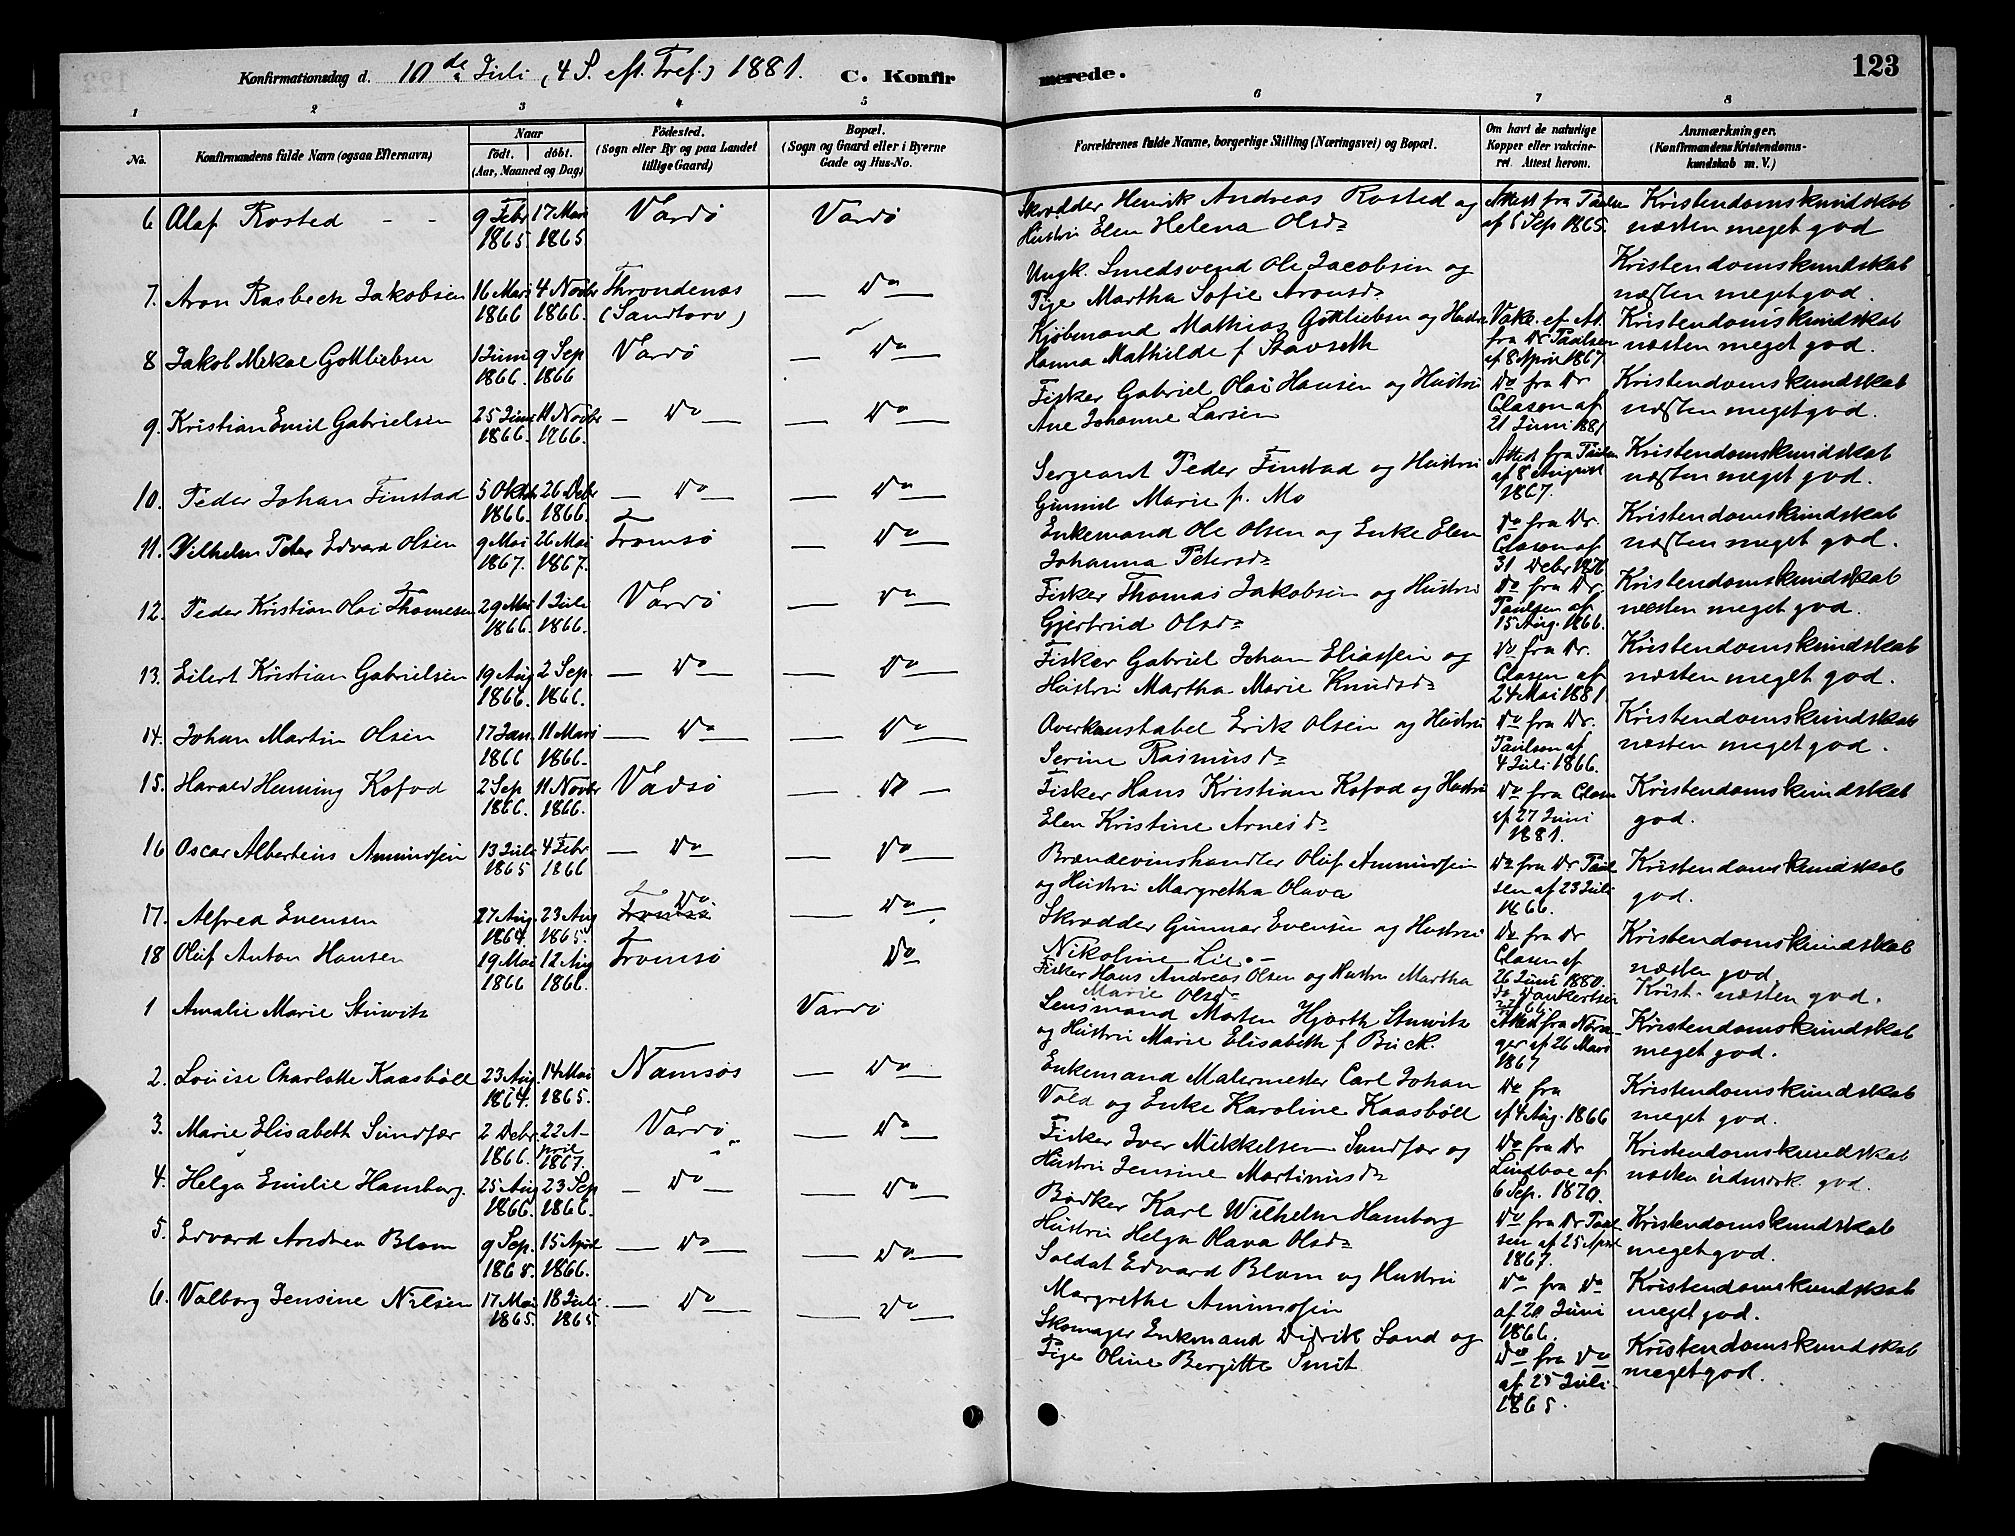 Konfirmationsdag d. 10de Juli (4 S. eft. Tref.) 1881. C. Konfir merede. 123
1 2 3 4 5 6 7 8
No. Konfirmandens fulde Navn (ogsaa Efternavn) Naar født. døbt. (Aar, Maaned og Dag) Fødested. (Sogn eller By og paa Landet tillige Gaard) Bopæl. (Sogn og Gaard eller i Byerne Gade og Hus-No. Forældrenes fulde Navne, borgerlige Stilling (Næringsvei) og Bopæl. Om havt de naturlige Kopper eller vakcineret. Attest herom. Anmærkninger. (Konfirmandens Kristendomskundskab m. V.)
6 Olaf Rosted - - 9 Febr 17 Mai Vardö Vardö Skrædder Henrik Andreas Rosted og Attest fra Paulsen Kristendomskundskab
1865 1865 Hustru Elen Helena Olsdr af 5 Sep 1865. næsten meget god
7. Aron Rasbech Jakobsen 16 Mars 4 Novbr Throndenæs Do Ungk. Smedsvend Ole Jacobsen og Kristendomskundskab
1866 1866. (Sandtorv) Pige Martha Sofie Aronsdr næsten meget god.
8 Jakob Mikal Gottliebsen 1 Juni 9 Sep Vardö Do Kjøbmand Mathias Gottliebsen og Hustru Vakc. ef. At. Kristendomskundskab
1866. 1866 Hanna Mathilde f Stavseth fra Dr Paulsen af 8 April 1867. næsten meget god.
9. Kristian Emil Gabrielsen 25 Juni 11 Novbr Do Do Fisker Gabriel Olai Hansen og Hustru Do fra Dr Kristendomskundskab
1866. 1866. Ane Johanne Larsen Clasen af 21 Juni 1881 næsten meget god.
10. Peder Johan Finstad 5 Oktb 26 Debr Do Do Sergeant Peder Finstad og Hustru Attest fra Paulsen Kristendomskundskab
1866. 1866. Gunnil Marie f. Mo af 8 August 1867. næsten meget god.
11. Vilhelm Peter Edvard Olsen 9 Mai 26 Mai Tromsö Do Enkemand Ole Olsen og Enke Elen Do fra Dr. Kristendomskundskab
1867. 1867. Johanna Petersdr Clasen af 31 Debr næsten meget god.
12. Peder Kristian Olai Thomesen 29 Mai 1 Juli Vardö Do Fisker Thomas Jakobsen og Hustru Do fra Dr. Kristendomskundskab
1866. 1866. Gjertrud Olsdr Paulsen af 15 Aug. 1866. næsten meget god.
13. Eilert Kristian Gabrielsen 19 Aug 2 Sep. Do Do Fisker Gabriel Johan Eliassen og Do fra Dr. Kristendomskundskab
1866. 1866. Hustru Martha Marie Knudsdr Clasen af 24 Mai 1881. næsten meget god.
14. Johan Martin Olsen 17 Jan. 11 Mars Do Do Overkonstabel Erik Olsen og Hustru Do fra Dr. Kristendomskundskab
1866 1866. Serine Rasmusdr Paulsen af 4 Juli 1866. næsten meget god.
15. Harald Henning Kofod 2 Sep 11 Novbr Vadsö Do Fisker Hans Kristian Kofod og Hustru Do fra Clasen Kristendomskundskab
1866. 1866. Elen Kristine Arnesdr af 27 Juni 1881. god.
16 Oscar Albertius Amundsen 13 Juli 4 Febr Do Do Brændevinshandler Oluf Ammundsen Do fra Dr Paulsen af 23 Juli Kristendomskundskab
1865 1866 og Hustru Margretha Olava 1866. god.
17. Alfred Evensen 27 Aug. 23 Aug Tromsö Do Do Skrædder Gunnar Evensen og Hustru Do fra Dr Kristendomskundskab
1864. 1865. Nikoline Lie. Clasen af 26 Juni 1880. næsten god.
18 Oluf Anton Hansen 19 Mai 12 Aug Tromsö Do Fisker Hans Andreas Olsen og Hustru Martha Krist. næsten god.
1866 1866. Marie Olsdr
1 Amalie Marie Stuwitz Vardö Lensmand Morten Hjorth Stuwitz Attest fra Kristendomskundskab
og Hustru Marie Elisabeth f Buck. af 26 Mars 1867 meget god.
2. Louise Charlotte Kaasböll 23 Aug. 14 Mai Namsos Do Enkemand Malermester Carl Johan Do fra Kristendomskundskab
1864. 1865. Vold og Enke Karoline Kaasböll af 4 Aug. 1866 meget god.
3. Marie Elisabeth Sundfær 2 Debr. 22 April Vardö Do Fisker Iver Mikkelsen Sundfær og Do fra Dr Kristendomskundskab
1866. 1867. Hustru Jensine Martinusdr Lindboe af 6 Sep. 1870. næsten udmærk. god.
4. Helga Emilie Hamborg. 25 Aug 23 Sep Do Do Bödker Karl Wilhelm Hamborg Do fra Dr Paulsen af 25 April Kristendomskundskab
1866. 1866. Hustru Helga Olava Olsdr 1867. meget god.
5. Edvard Andrea Blom 9 Sep. 15 April Do Do Soldat Edvard Blom og Hustru Do fra Do Kristendomskundskab
1865. 1866. Margrethe Amundsen af 20 Juni 1866. meget god.
6. Valborg Jensine Nilsen 17 Mai 18 Juli Do Do Skomager Enkemand Didrik Sand og Do fra Do Kristendomskundskab
1865. 1865 Pige Oline Bergitte Smit af 25 Juli 1865. meget god.